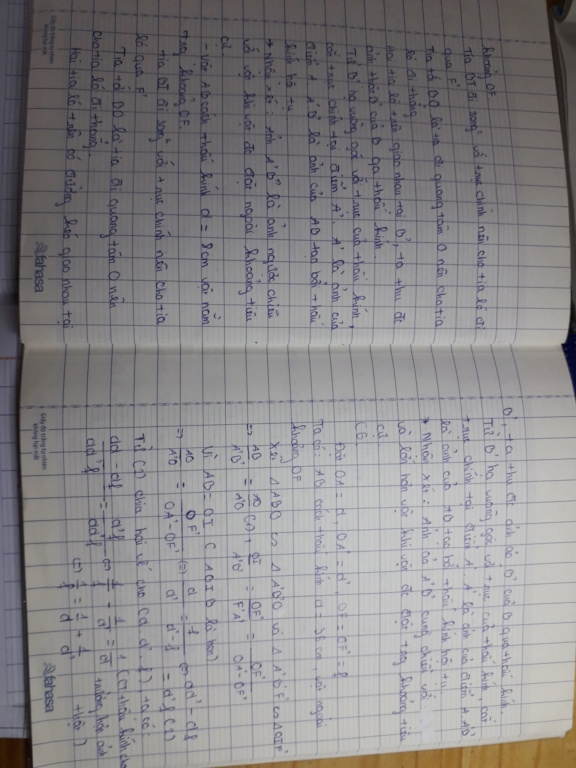 khoảng OF
Tia BI đi song² với trục chính nên cho tia ló đi
qua F'
Tia tới BO là tia đi quang tâm O nên cho tia
ló đi thẳng
Hai tia ló trên giao nhau tại B', ta thu đc
ảnh thật B' của B qua thấu kính.
Từ B' hạ vuông góc với trục của thấu kính,
cắt trục chính tại điểm A', A' là ảnh của
điểm A. A'B' là ảnh của AB tạo bởi thấu
kính hội tụ
* Nhận xét: Ảnh A'B' là ảnh ngược chiều
với vật khi vật đc đặt ngoài khoảng tiêu
cự
- Vật AB cách thấu kính d = 8cm vật nằm
trong khoảng OF.
Tia BI đi song² với trục chính nên cho tia
ló qua F'
Tia tới BO là tia đi quang tâm O nên
cho tia ló đi thẳng.
Hai tia ló trên có đường kéo giao nhau tại
fahasa
B', ta thu đc ảnh ảo B' của B qua thấu kính.
Từ B' hạ vuông góc với trục của thấu kính cắt
trục chính tại điểm A', A' là ảnh của điểm A. A'B'
là ảnh của AB tạo bởi thấu kính hội tụ.
* Nhận xét: Ảnh ảo A'B' cùng chiều với
và lớn hơn vật khi vật đc đặt trong khoảng tiêu
cự
C6.
Đặt OA = d, OA' = d', OF = OF' = f
Ta có: AB cách thấu kính d = 36cm vật ngoài
khoảng OF
Xét ΔABO ∽ ΔA'B'O và ΔA'B'F' ∽ ΔOIF'
=> AB/A'B' = AO/A'O (1) + OI/A'B' = OF'/F'A' = OF'/OA'-OF'
Vì AB = OI (AOIB là hcn)
=> AO/A'O = OF'/OA'-OF' <=> d/d' = f/d'-f <=> dd' - df
= d'f (1)
Từ (1) chia hai vế cho (d d' f) ta có:
dd'/dd'f - df/dd'f = d'f/dd'f <=> 1/f - 1/d' = 1/d <=> 1/f = 1/d + 1/d'
fahasa